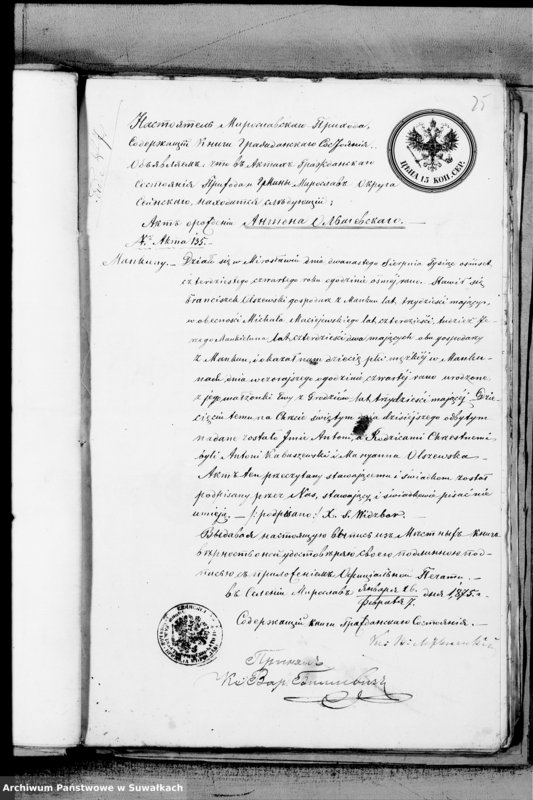 25
ЦѢНА 15 КОП. СЕР.
Настоятель Мирославскаго Прихода,
Содержащій Книги Гражданскаго Состоянія
Объявляемъ, что въ Актахъ Гражданскаго
Состоянія Прихода и Гмины Мирославъ Округа
Сейнскаго, находится слѣдующій:
Актъ рожденія Антона Ольшевскаго.
№ Акта 135.
Mankuny. Działo się w Mirosławiu dnia dwunastego Sierpnia tysiąc ośmset
czterdziestego czwartego roku o godzinie osmej rano. Stawił się
Franciszek Olszewski gospodarz z Mankun lat trzydzieści mający,
w obecności Michała Maciejewskiego lat czterdzieści, Andrzeja
Mankieluna lat czterdzieści dwa mających oba gospodarzy
z Mankun, i okazał nam dziecię płci męzkiej w Mankunach
dnia wczorajszego o godzinie czwartej rano urodzone
z jego małżonki Ewy z Brodzów lat trzydzieści mającej. Dziecięciu
temu na Chrzcie świętym dnia dzisiejszego odbytym
nadane zostało Imie Antoni, a Rodzicami Chrzestnemi
byli Antoni Kabaszewski i Maryanna Olszewska
Akt ten przeczytany stawającemu i świadkom został
podpisany przez Nas, stawający i świadkowie pisać nie
umieją. — /:podpisano:/ X. S. Widzbor.
Выдавая настоящую выпись изъ Мѣстныхъ книгъ
вѣрность оной удостовѣряю своею подлинною подписью
съ приложеніемъ Оффиціальной Печати. —
въ Селеніи Мирославъ Января 26 / Февраля 7 дня 1875 г.
Содержащій книги Гражданскаго Состоянія.
Принялъ
Archiwum Państwowe w Suwałkach